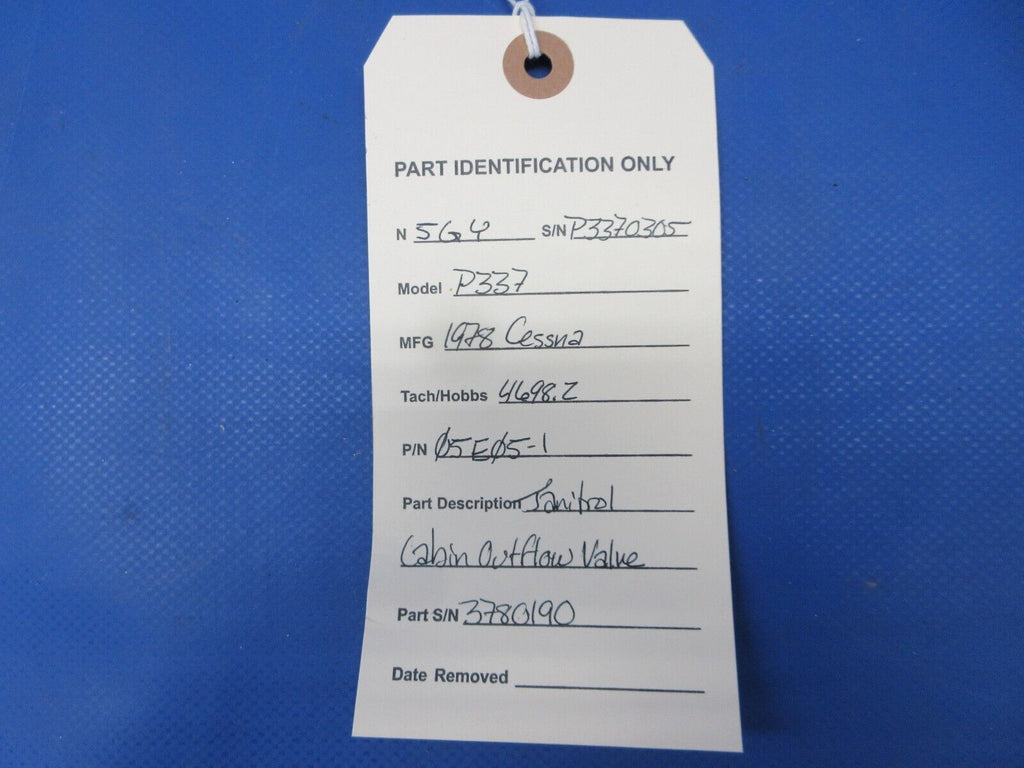 PART IDENTIFICATION ONLY
N 5G4 S/N P3370305
Model P337
MFG 1978 Cessna
Tach/Hobbs 4698.2
P/N Ø5EØ5-1
Part Description Janitrol
Cabin Outflow Valve
Part S/N 3780190
Date Removed